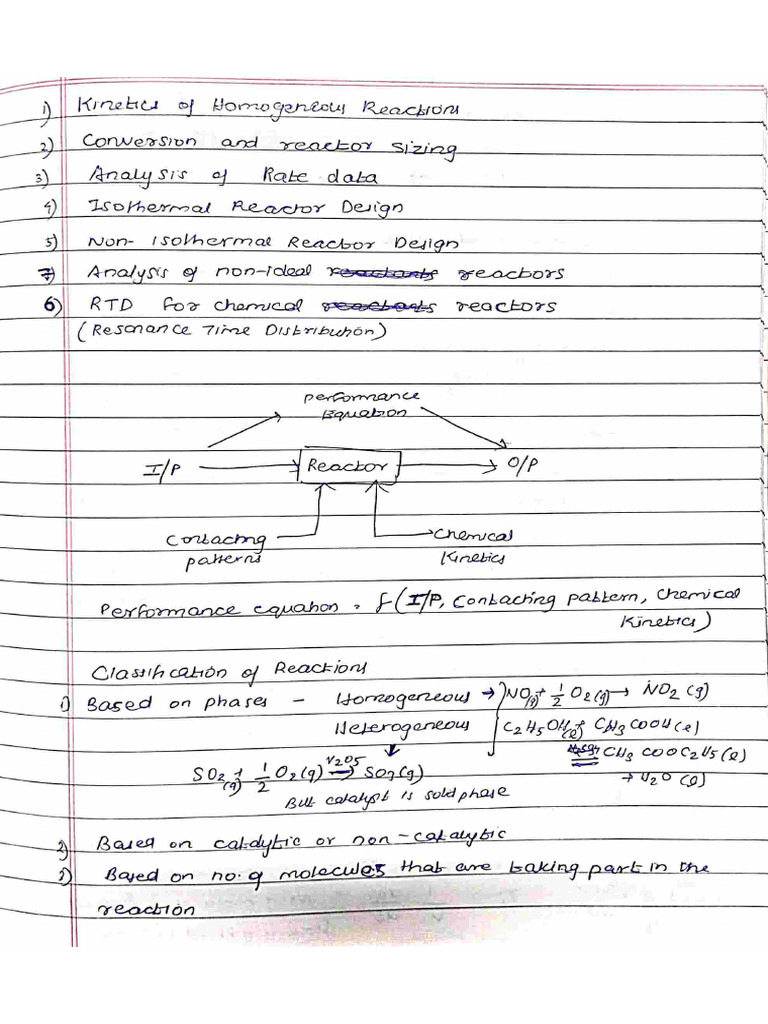 1) Kinetics of Homogeneous Reactions
2) Conversion and reactor sizing
3) Analysis of Rate data
4) Isothermal Reactor Design
5) Non-Isothermal Reactor Design
7) Analysis of non-ideal reactants reactors
6) RTD for chemical reactors
(Resonance Time Distribution)
Performance
Equation
I/P Reactor O/P
Contacting Chemical
patterns Kinetics
Performance equation = f(I/P, Contacting pattern, Chemical
Kinetics)
Classification of Reactions
1) Based on phases - Homogeneous → NO(g) + 1/2 O2(g) → NO2(g)
Heterogeneous C2H5OH(l) + CH3COOH(l)
⇌ CH3COOC2H5(l)
SO2(g) + 1/2 O2(g) V2O5 SO3(g) + H2O(l)
But catalyst is solid phase
2) Based on catalytic or non-catalytic
2) Based on no. of molecules that are taking part in the
reaction